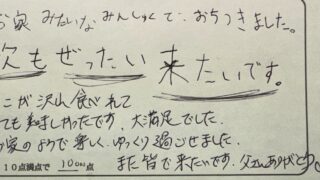 お家 みたいな みんしゅくで、おちつきました。
次も ぜったい 来たいです。
こが沢山 食べれて
ても美味しかったです。大満足でした。
お家のようで楽しく、ゆっくり過ごせました。
10点満点で 100点 また皆で来たいです。父さんありがとう